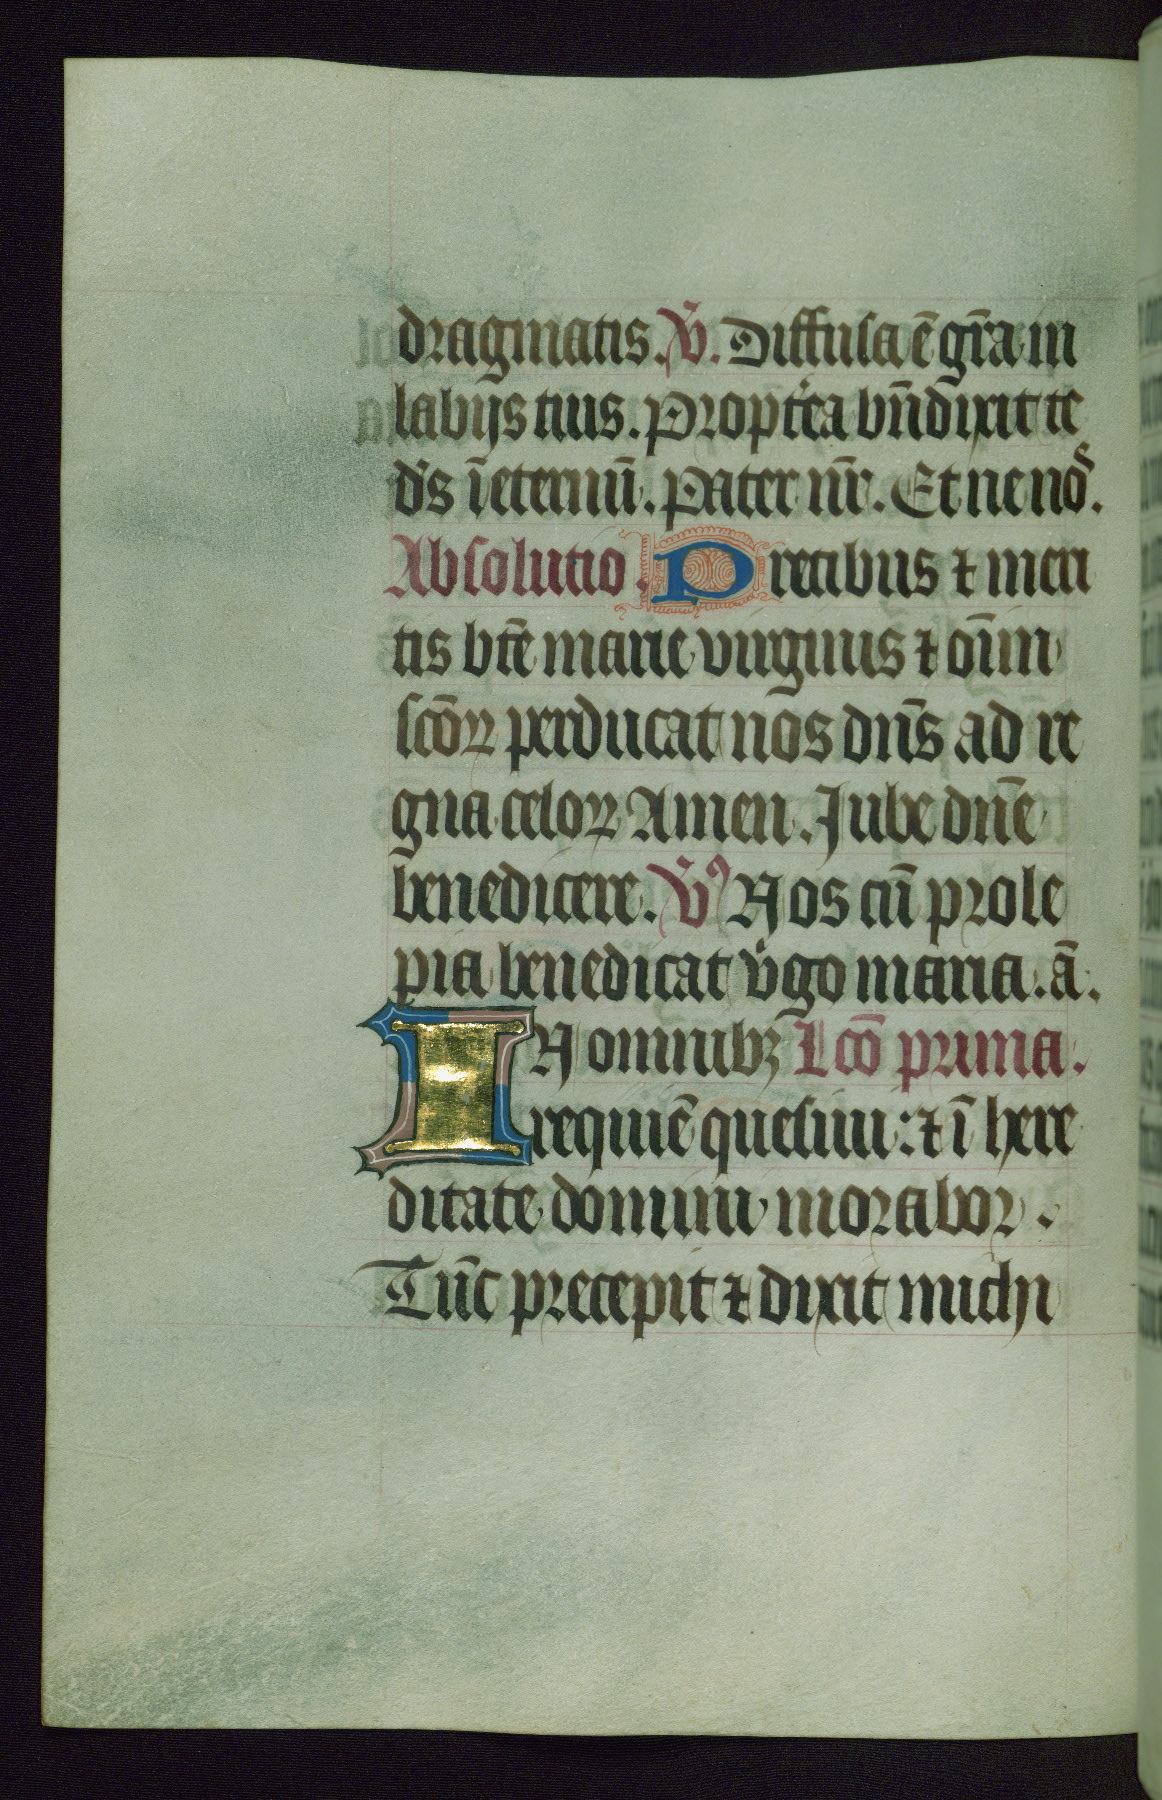 dragmatis. V̄. Diffusa ē gr̄a in
labijs tuis. Propt̓ea bn̄dixit te
d̓s ī eternū. Pater nr̄. Et ne nos̄.
Absolutio. Precibus ⁊ meri
tis bt̄e marie virginis ⁊ oīm
sc̄oꝝ perducat nos dn̄s ad re
gna celoꝝ Amen. Jube dn̄e
benedicere. V̄ꝰ Nos cū prole
pia benedicat v̓go maria. ā.
IN omnibꝫ Lc̄o prima.
requiē quesiui: ⁊ ī here
ditate domini morabor.
Tūc precepit ⁊ dixit michi